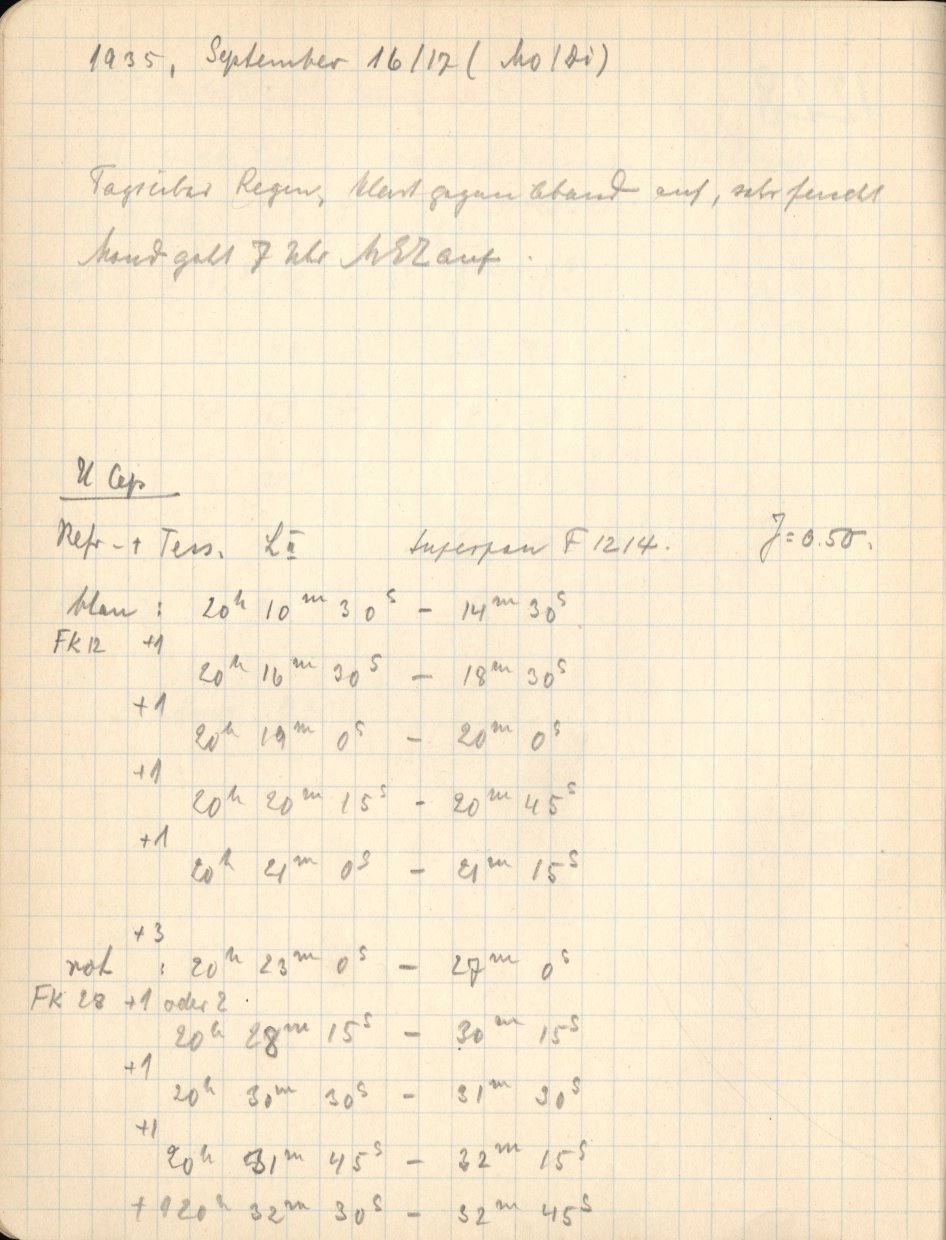 1935, September 16/17 (Mo/Di)
Tagsüber Regen, klart gegen Abend auf, sehr feucht
Mond geht 7 Uhr MEZ auf.
U Cep
Refr + Tess. L II Superpan F 1214. J = 0.50.
blau : 20h 10m 30s – 14m 30s
FK 12 +1
20h 16m 30s – 18m 30s
+1
20h 19m 0s – 20m 0s
+1
20h 20m 15s – 20m 45s
+1
20h 21m 0s – 21m 15s
+3
rot : 20h 23m 0s – 27m 0s
FK 28 +1 oder 2
20h 28m 15s – 30m 15s
+1
20h 30m 30s – 31m 30s
+1
20h 31m 45s – 32m 15s
+1 20h 32m 30s – 32m 45s